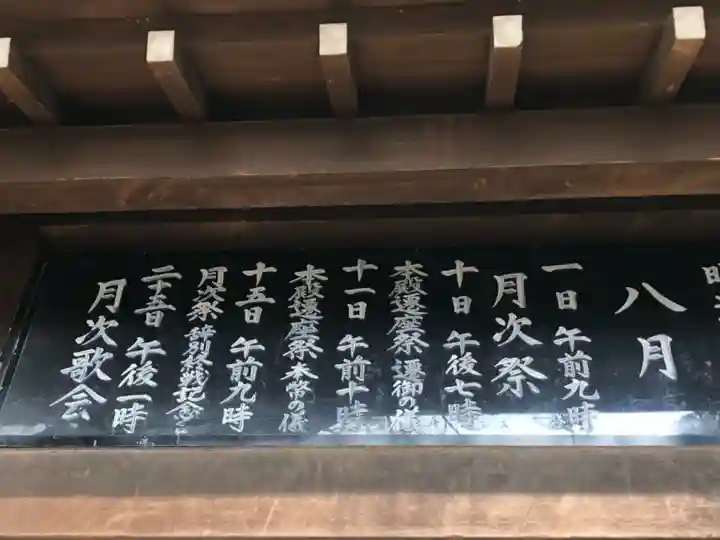 八月
一日 午前九時
月次祭
十日 午後七時
本殿遷座祭 遷御の儀
十一日 午前十時
本殿遷座祭 本幣の儀
十五日 午前九時
月次祭 終戦記念
二十五日 午後一時
月次歌会